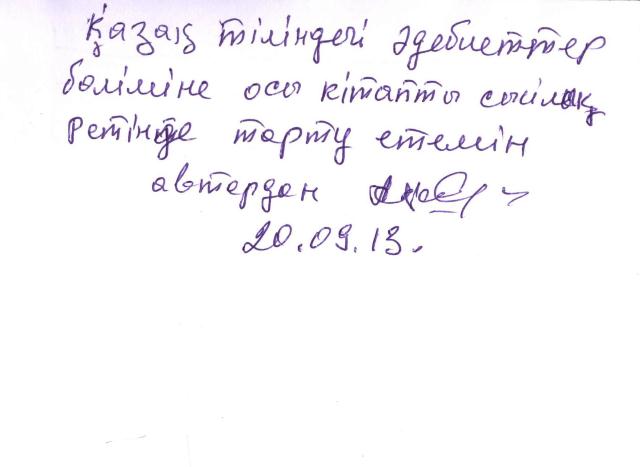 Қазақ тіліндегі әдебиеттер
бөліміне осы кітапты сыйлық
ретінде тарту етемін
автердан
20.09.13.